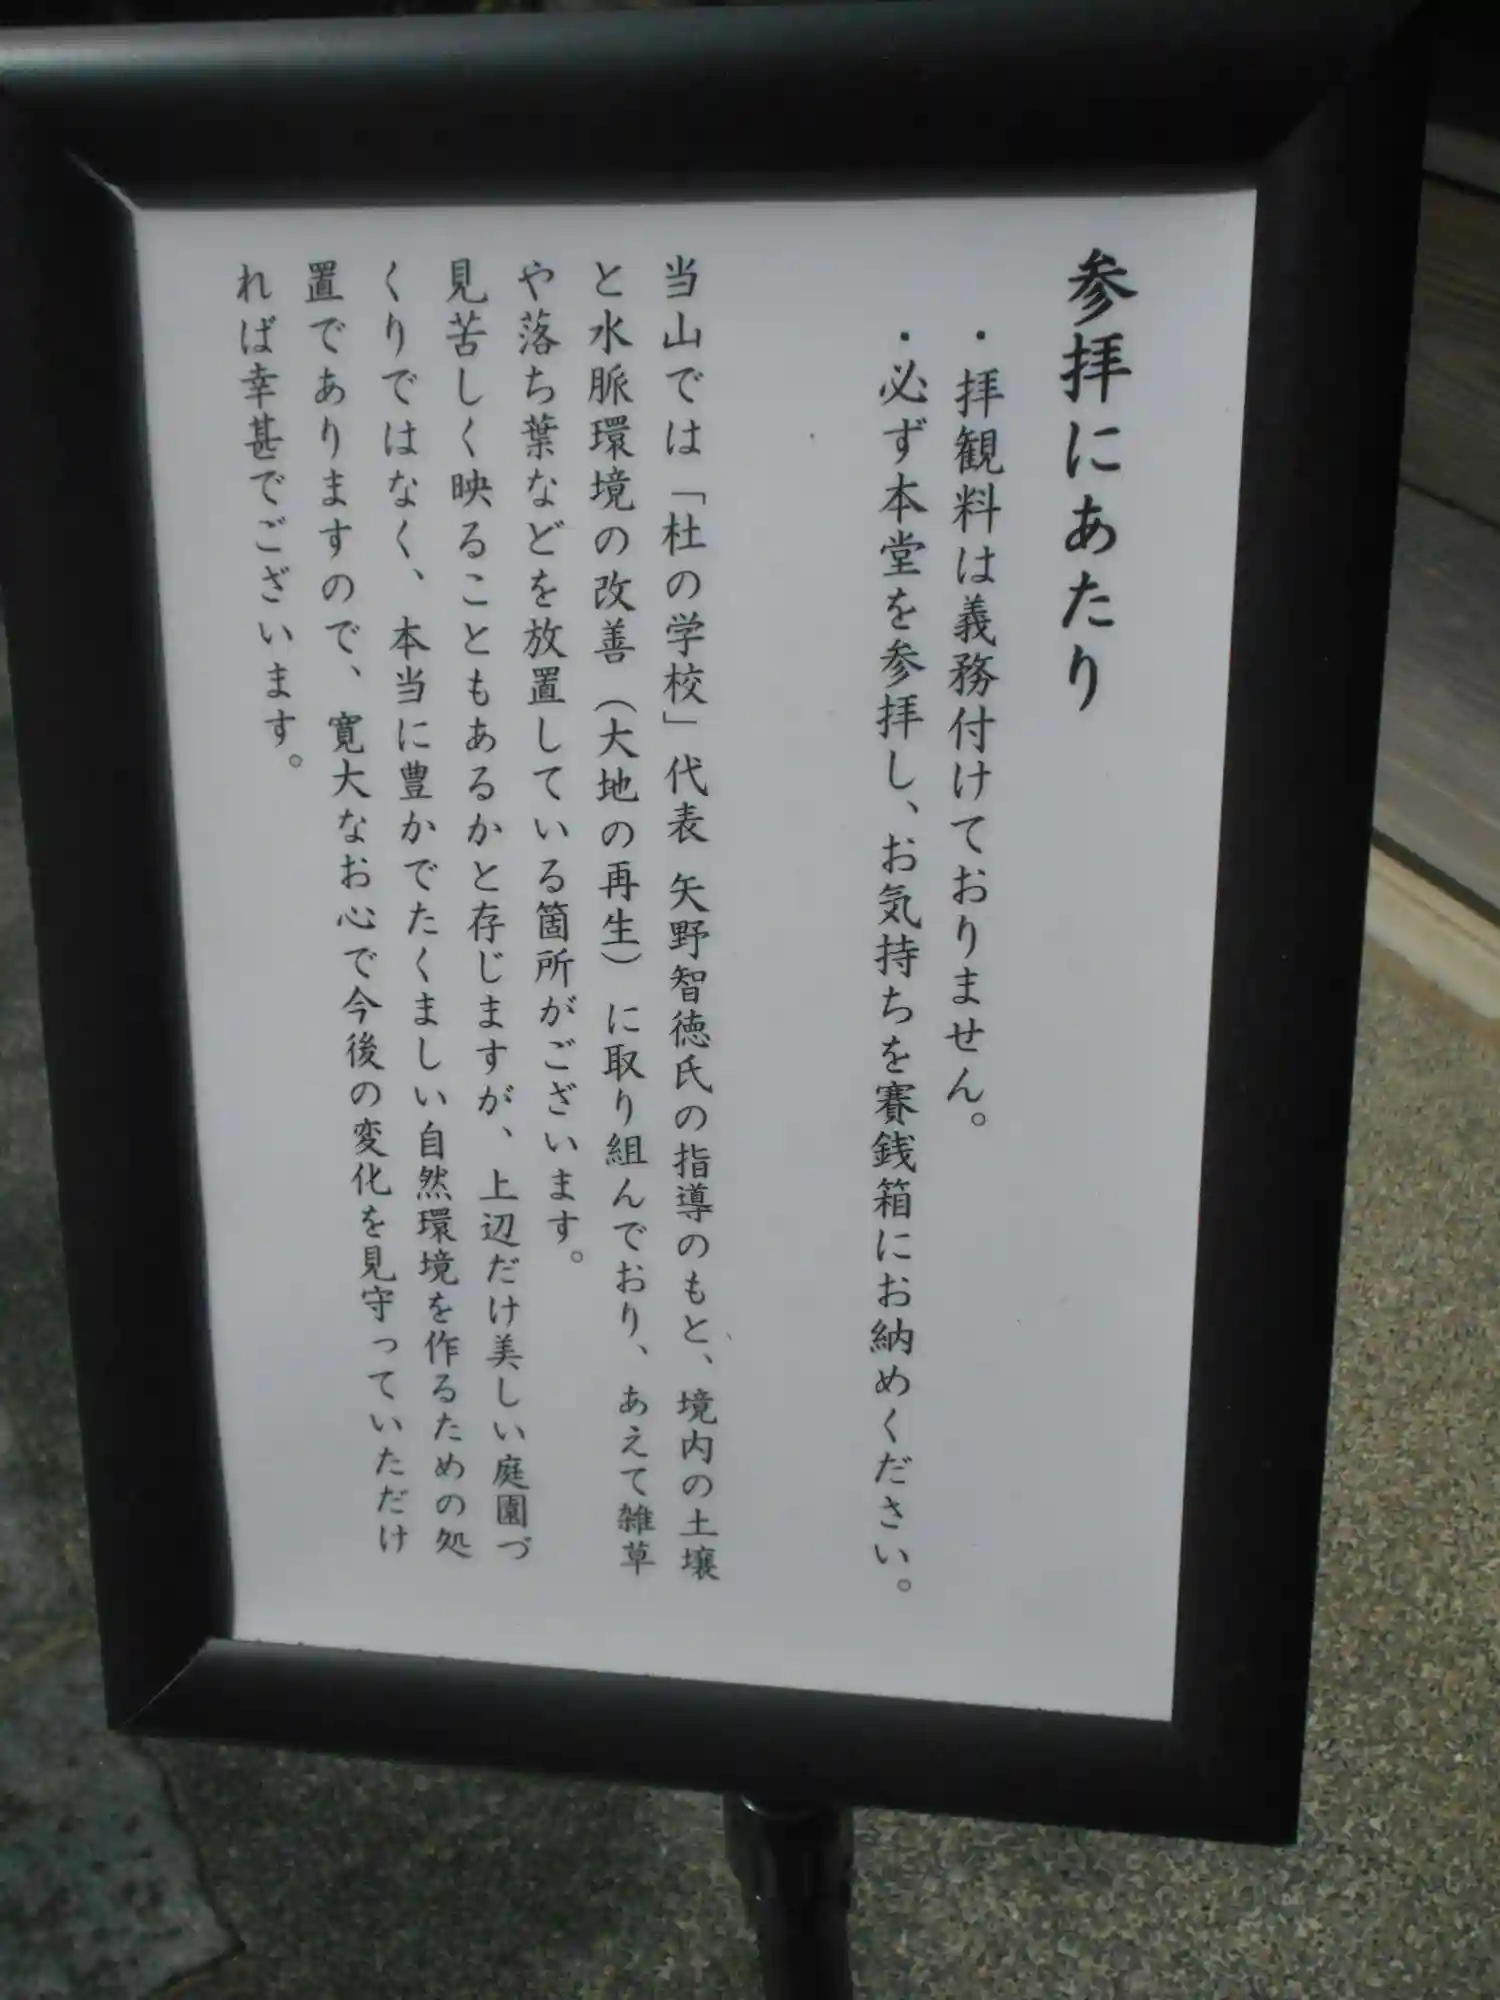 参拝にあたり
・拝観料は義務付けておりません。
・必ず本堂を参拝し、お気持ちを賽銭箱にお納めください。
当山では「杜の学校」代表 矢野智徳氏の指導のもと、境内の土壌
と水脈環境の改善（大地の再生）に取り組んでおり、あえて雑草
や落ち葉などを放置している箇所がございます。
見苦しく映ることもあるかと存じますが、上辺だけ美しい庭園づ
くりではなく、本当に豊かでたくましい自然環境を作るための処
置でありますので、寛大なお心で今後の変化を見守っていただけ
れば幸甚でございます。